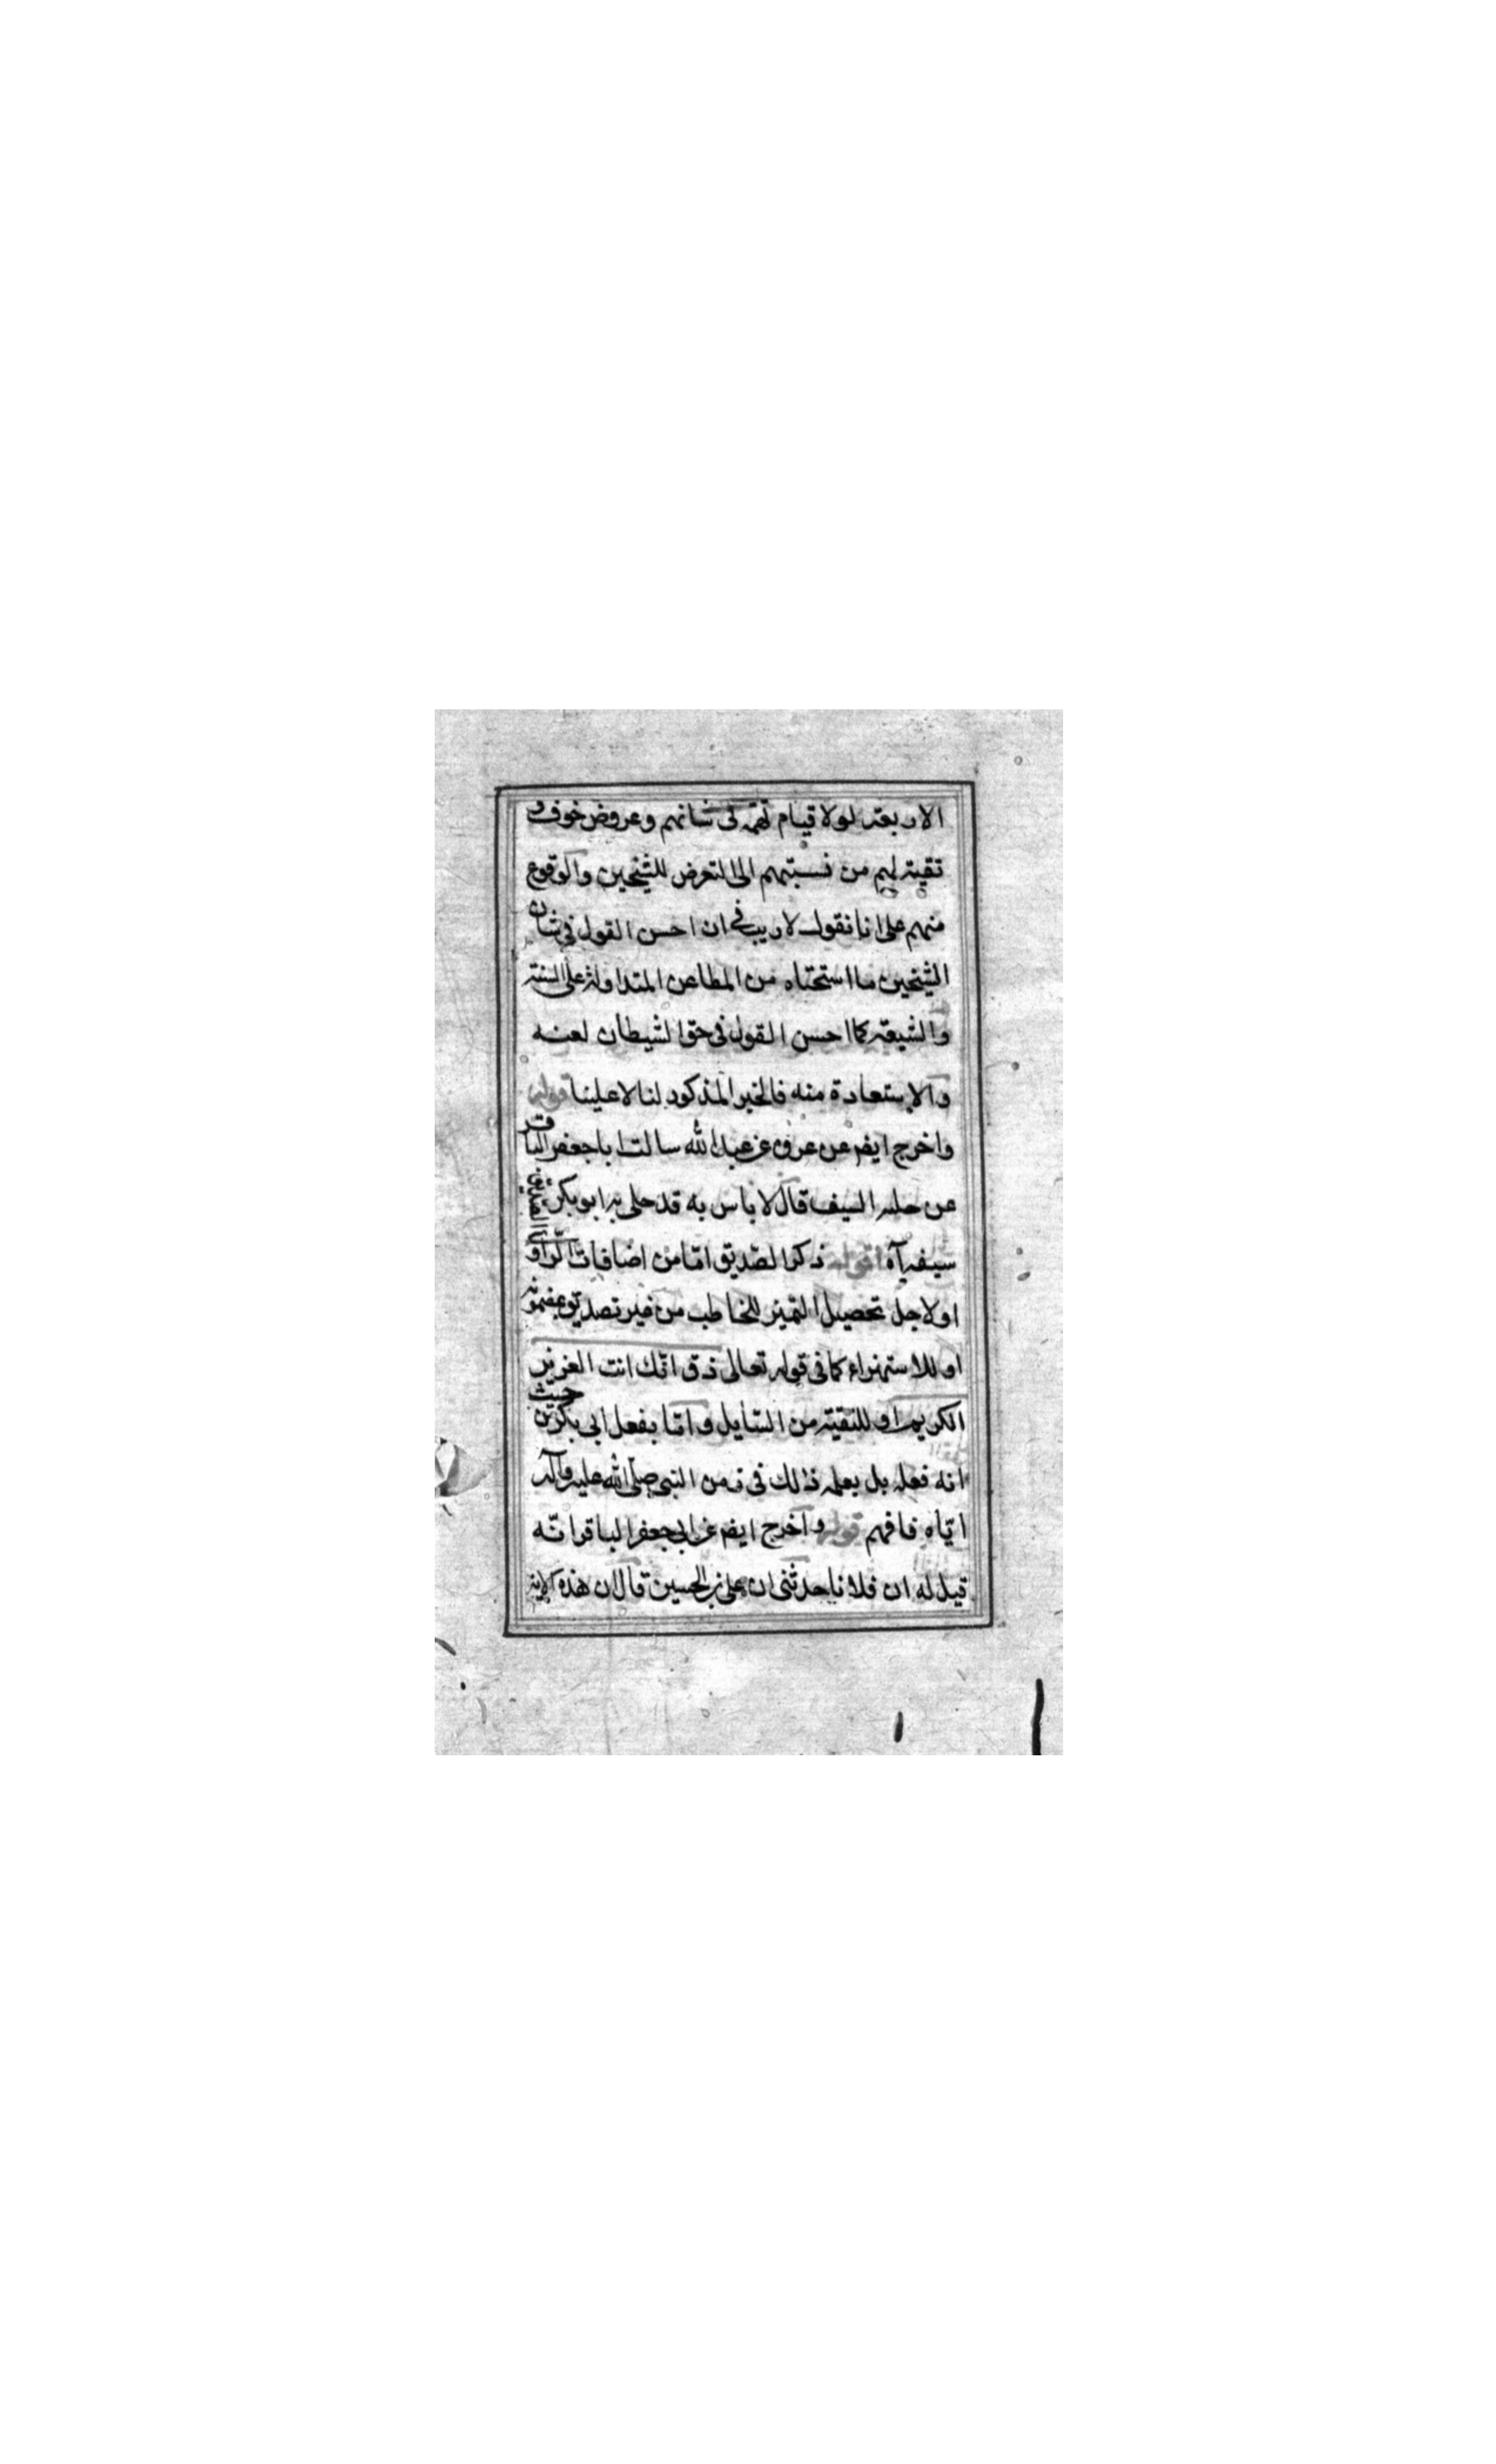 الاربعة لولا قيام تهمة فى شانهم وعروض خوف و
تقية لهم من نسبتهم الى التعرض للشيخين والوقوع
منهم على انا نقول لا ريب فى ان احسن القول فى شان
الشيخين ما استحقاه من المطاعن المتداولة على السنة
والشيعة كما احسن القول فى حق الشيطان لعنه
والاستعاذة منه فالخبر المذكور لنا لا علينا قوله
واخرج ايضا عن عروة عن عبد الله سالت ابا جعفر الباقر
عن حلية السيف قال لا باس به قد حلى به ابو بكر
سيفه آه اقول ذكر الصديق امّا من اضافات الراوى
او لاجل تحصيل التميز للمخاطب من غير تصديق بمضمونه
او للاستهزاء كما فى قوله تعالى ذق انّك انت العزيز
الكريم او للتقية من السّايل و امّا بفعل ابى بكر من حيث
انه فعله بل بعلمه ذلك فى زمن النبى صلّى الله عليه وآله
ايّاه فافهم قوله واخرج ايضا عن ابى جعفر الباقر انّه
قيل له ان فلانا حدثنى ان على بن الحسين قال ان هذه الاية